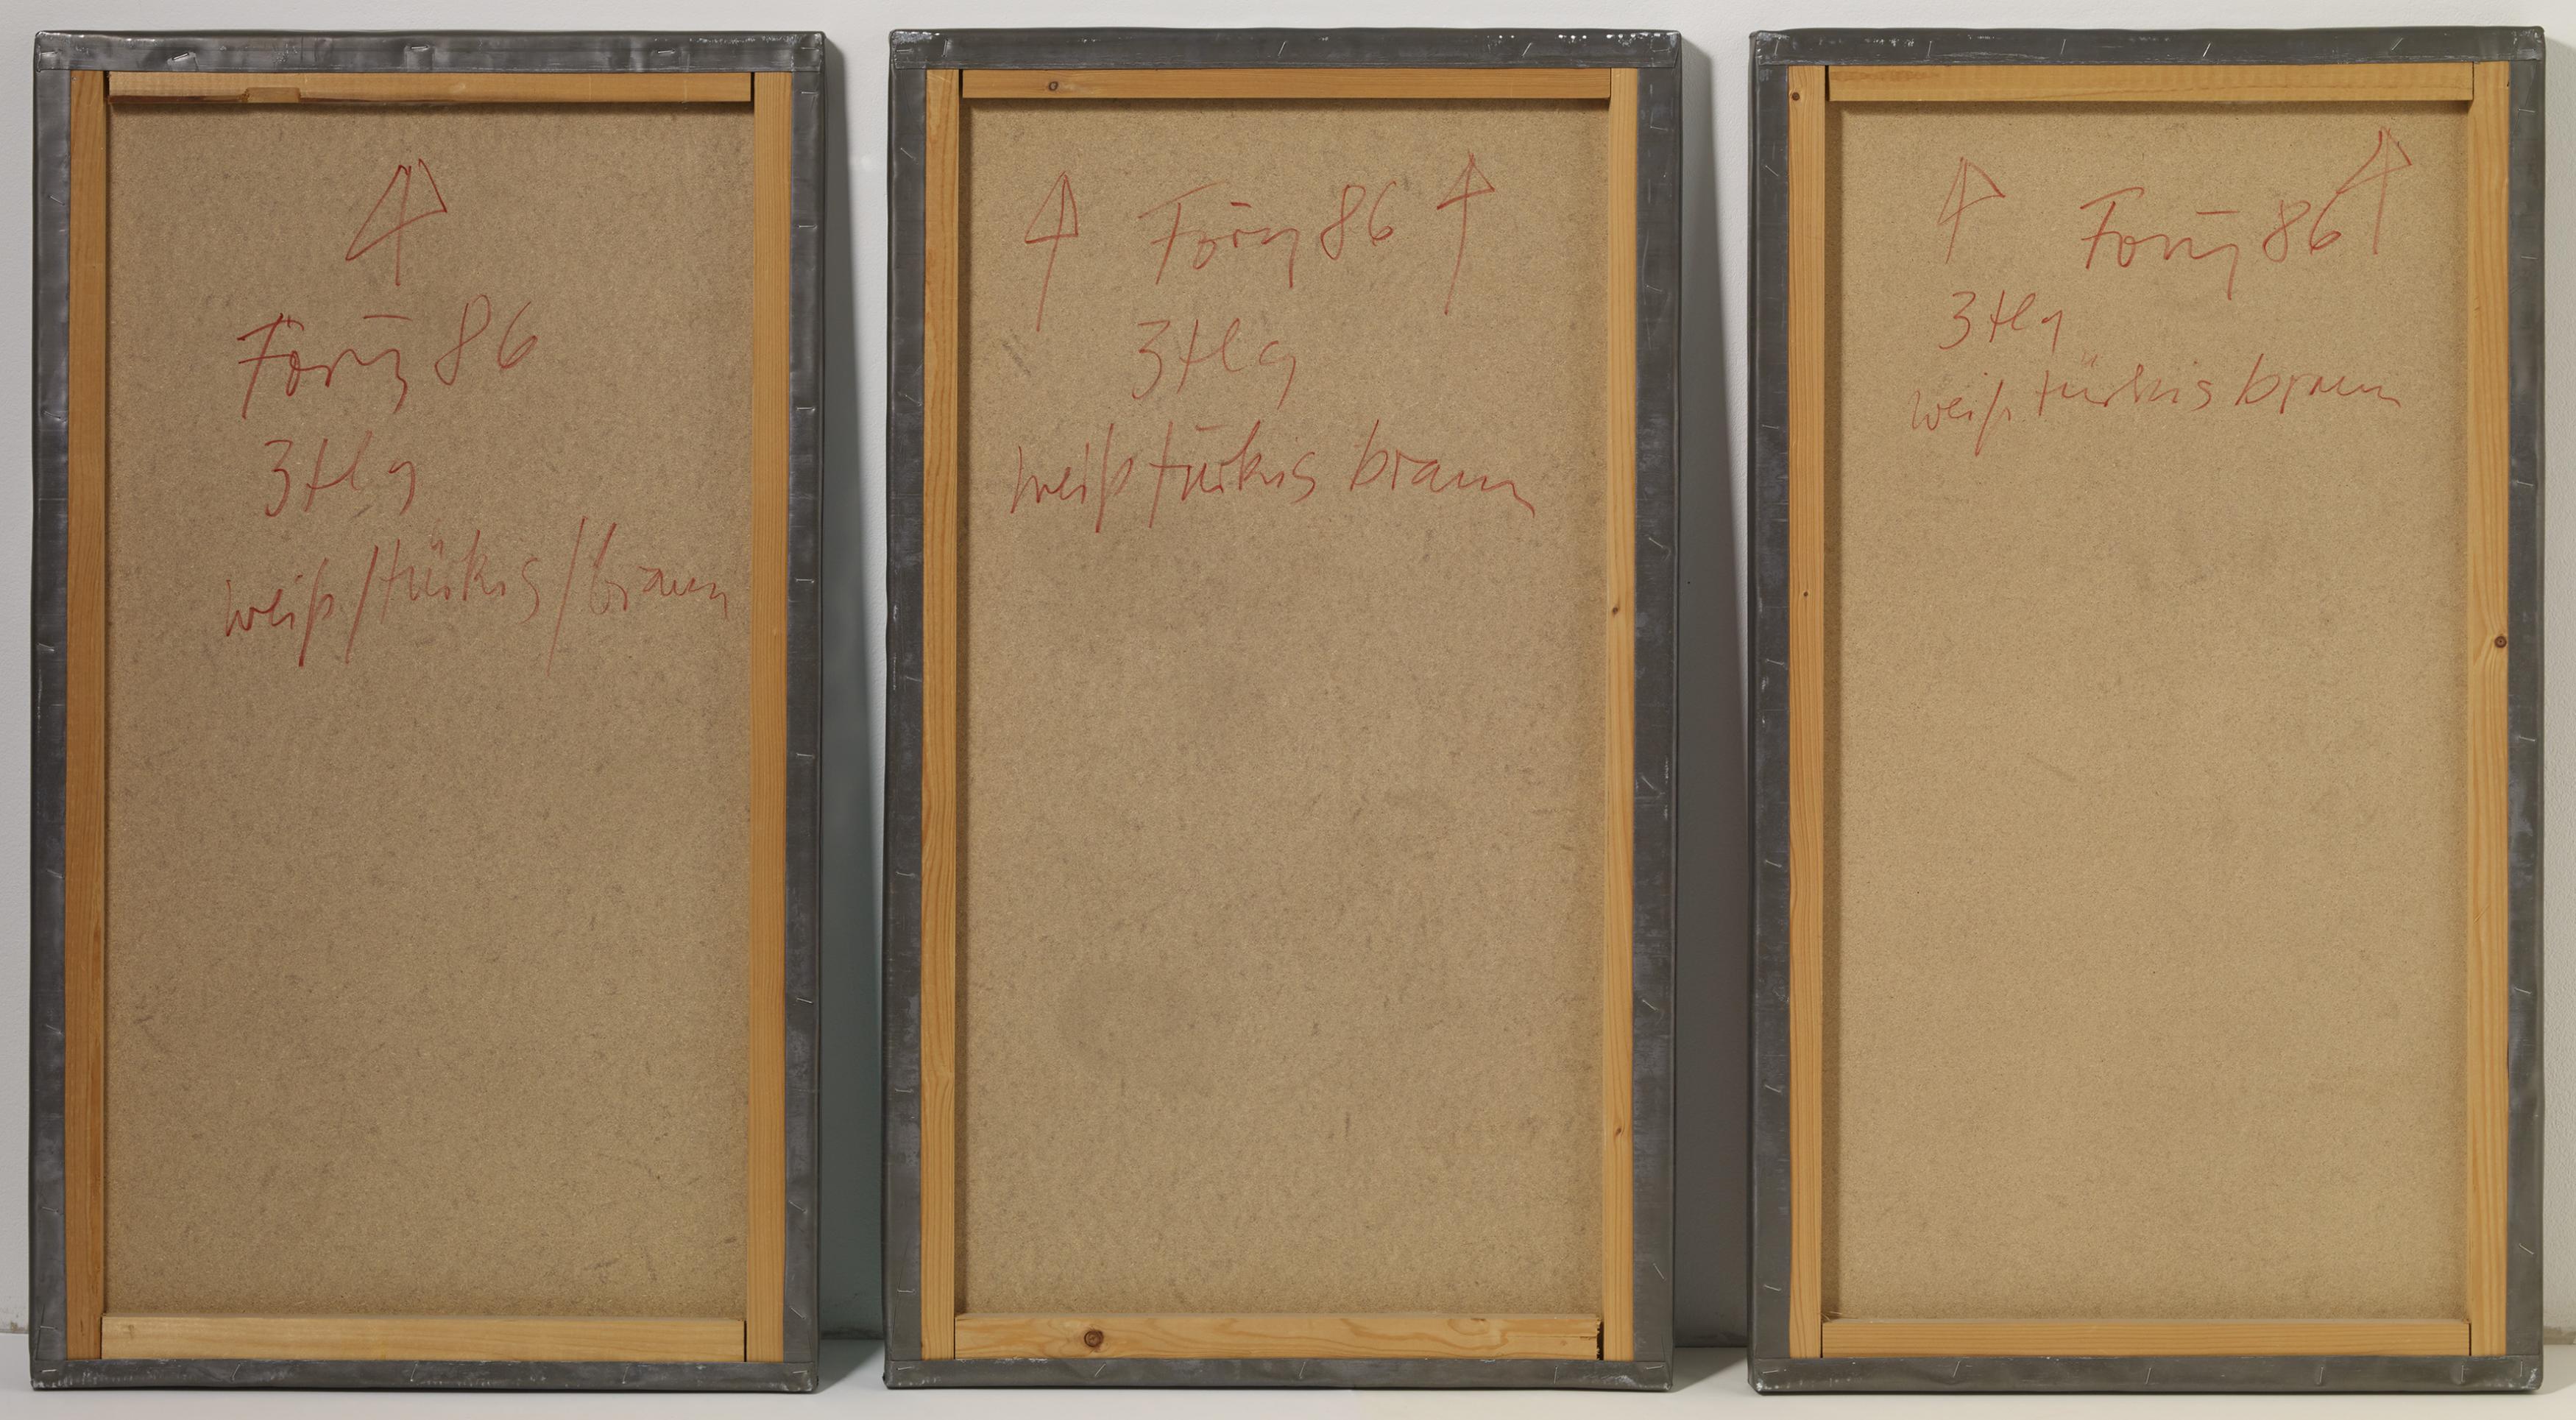 Förg 86
3tlg
weiß/türkis/braun
Förg 86
3tlg
weiß türkis braun
Förg 86
3tlg
weiß türkis braun